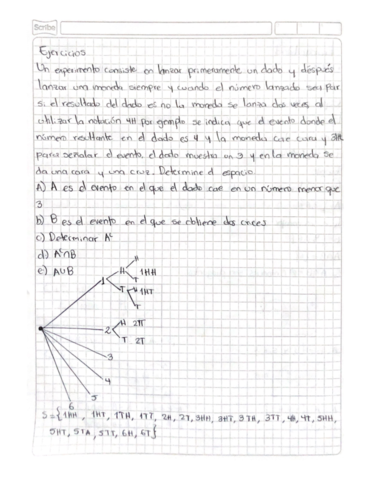 Scribe
Ejercicios
Un experimento consiste en lanzar primeramente un dado y después
lanzar una moneda siempre y cuando el número lanzado sea par
si el resultado del dado es no la moneda se lanza dos veces al
utilizar la notación 4H por ejemplo se indica que el evento donde el
número resultante en el dado es 4 y la moneda cae cara y 3HT
para señalar el evento el dado muestra un 3 y en la moneda se
da una cara y una cruz. Determine el espacio
A) A es el evento en el que el dado cae en un número menor que
3
b) B es el evento en el que se obtiene dos cruces
c) Determinar A'
d) A'∩B
e) A∪B
H
H 1HH
T
1
T H 1HT
T
2 H 2H
T 2T
3
4
5
6
S={1HH, 1HT, 1TH, 1TT, 2H, 2T, 3HH, 3HT, 3TH, 3TT, 4H, 4T, 5HH,
5HT, 5TH, 5TT, 6H, 6T}